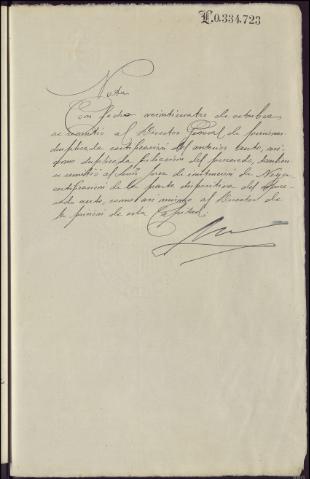 L.0.334.723
Nota
Con fecha veinticuatro de octubre
se remitió al Director General de penales
duplicada certificación del anterior auto, así
como duplicada filiación del procesado, tambien
se remitió al Señor Juez de instrucción de
certificación de la parte dispositiva del
auto, como asi mismo al Director de
la prision de esta Capital.